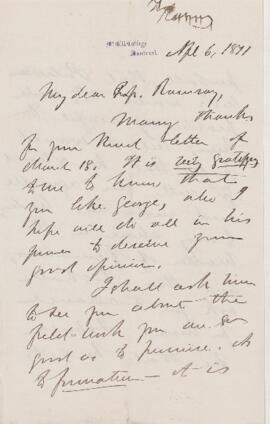 McGill College
Montreal.
Apl 6, 1891
My dear Prof. Ramsay,
Many thanks
for your kind letter of
March 18. It is very gratifying
to me to know that
you like George, who I
hope will do all in his
power to deserve your
good opinion.
I shall ask him
to see you about the
field-work you are so
good as to promise. As
to formation it is